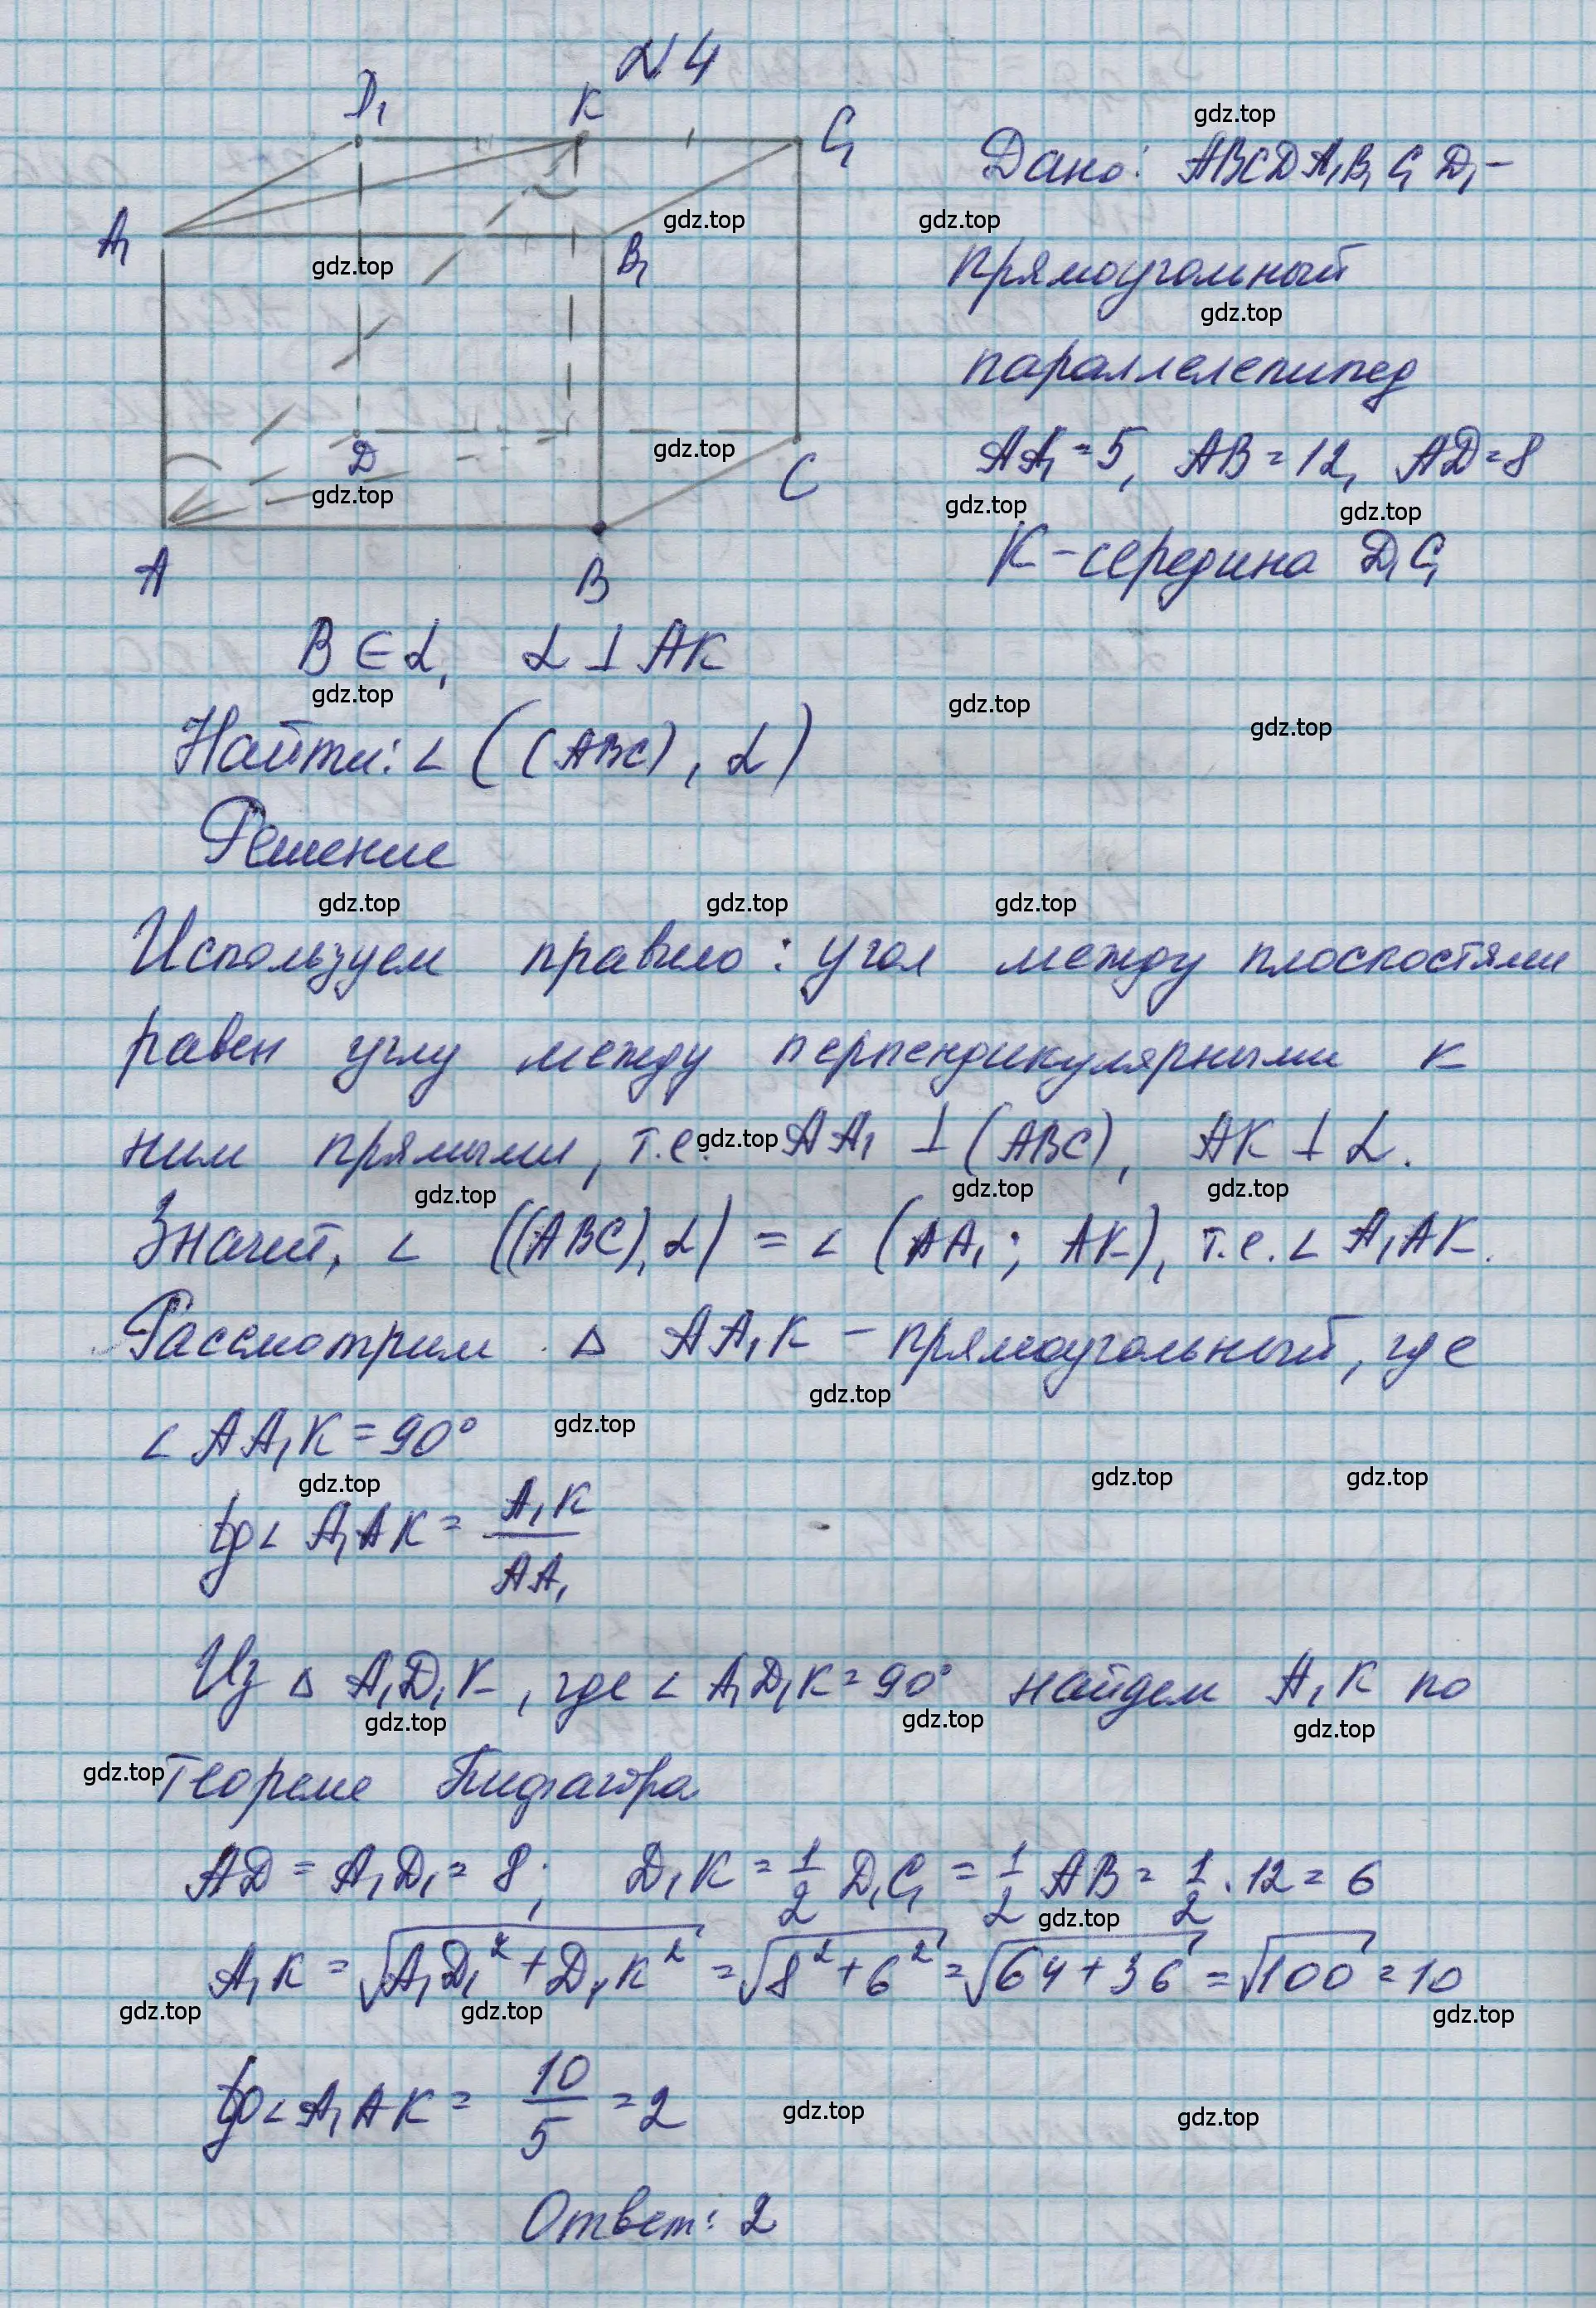 №4
D₁ K C₁
A₁ B₁
D C
A B
Дано: ABCDA₁B₁C₁D₁ –
прямоугольный
параллелепипед
AA₁ = 5, AB = 12, AD = 8
K – середина D₁C₁
B ∈ α, α ⊥ AK
Найти: ∠ ((ABC), α)
Решение
Используем правило: угол между плоскостями
равен углу между перпендикулярными к
ним прямыми, т.е. AA₁ ⊥ (ABC), AK ⊥ α.
Значит, ∠ ((ABC), α) = ∠ (AA₁; AK), т.е. ∠ A₁AK.
Рассмотрим △ AA₁K – прямоугольный, где
∠ AA₁K = 90°
tg∠ A₁AK = A₁K / AA₁
Из △ A₁D₁K, где ∠ A₁D₁K = 90° найдем A₁K по
теореме Пифагора
AD = A₁D₁ = 8; D₁K = 1/2 D₁C₁ = 1/2 AB = 1/2 · 12 = 6
A₁K = √(A₁D₁² + D₁K²) = √(8² + 6²) = √(64 + 36) = √100 = 10
tg∠A₁AK = 10/5 = 2
Ответ: 2
gdz.top